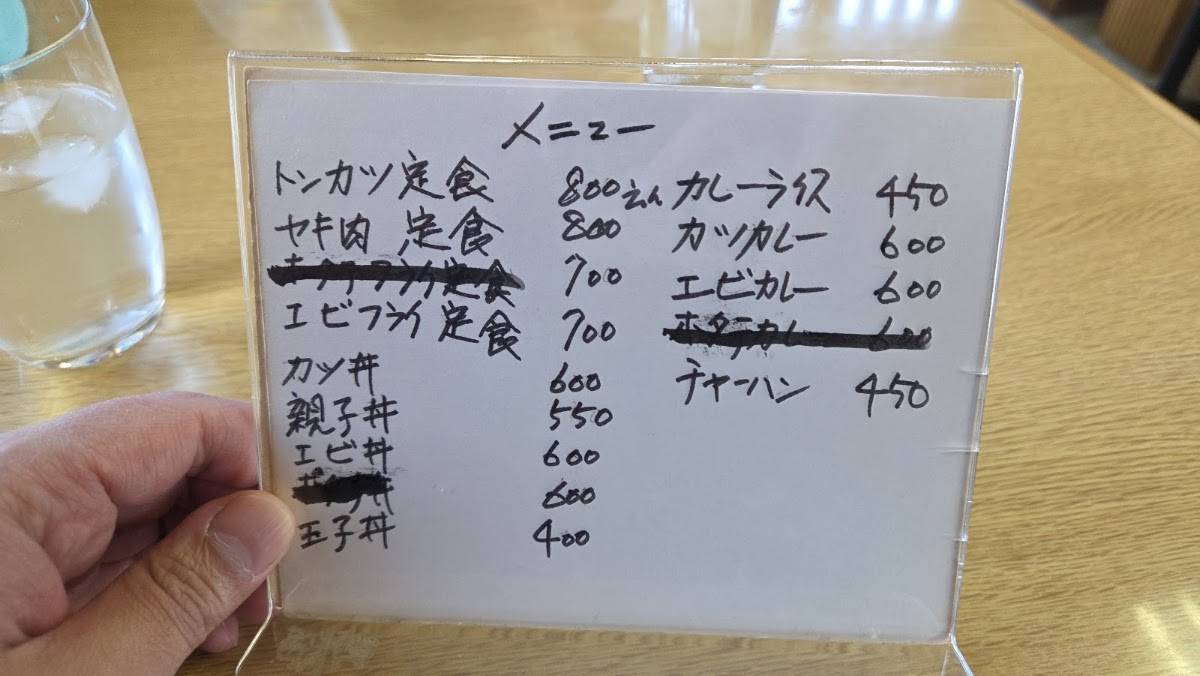 メニュー
トンカツ定食 800えん
ヤキ肉 定食 800
ホタテフライ定食 700
エビフライ定食 700
カツ丼 600
親子丼 550
エビ丼 600
丼 600
玉子丼 400
カレーライス 450
カツカレー 600
エビカレー 600
ホタテカレー 600
チャーハン 450